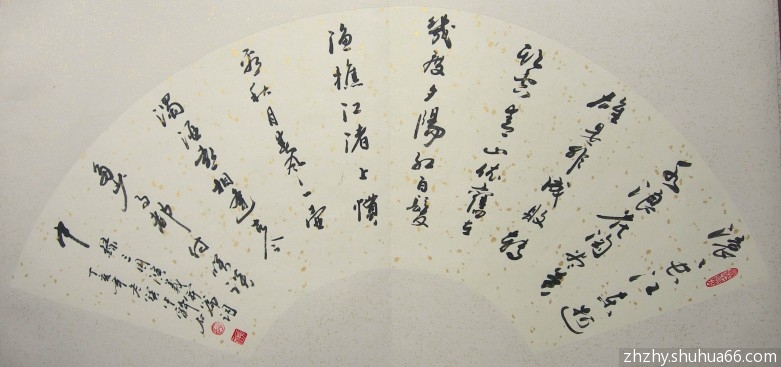 滚々长江东逝
水浪花淘尽英
雄是非成敗转
头空青山依舊在
幾度夕陽红白髮
漁樵江渚上慣
看秋月春风一壶
濁酒喜相逢古今
多少事都付笑谈
中
录三国演义开篇词
丁亥年
zhzhy.shuhua66.com